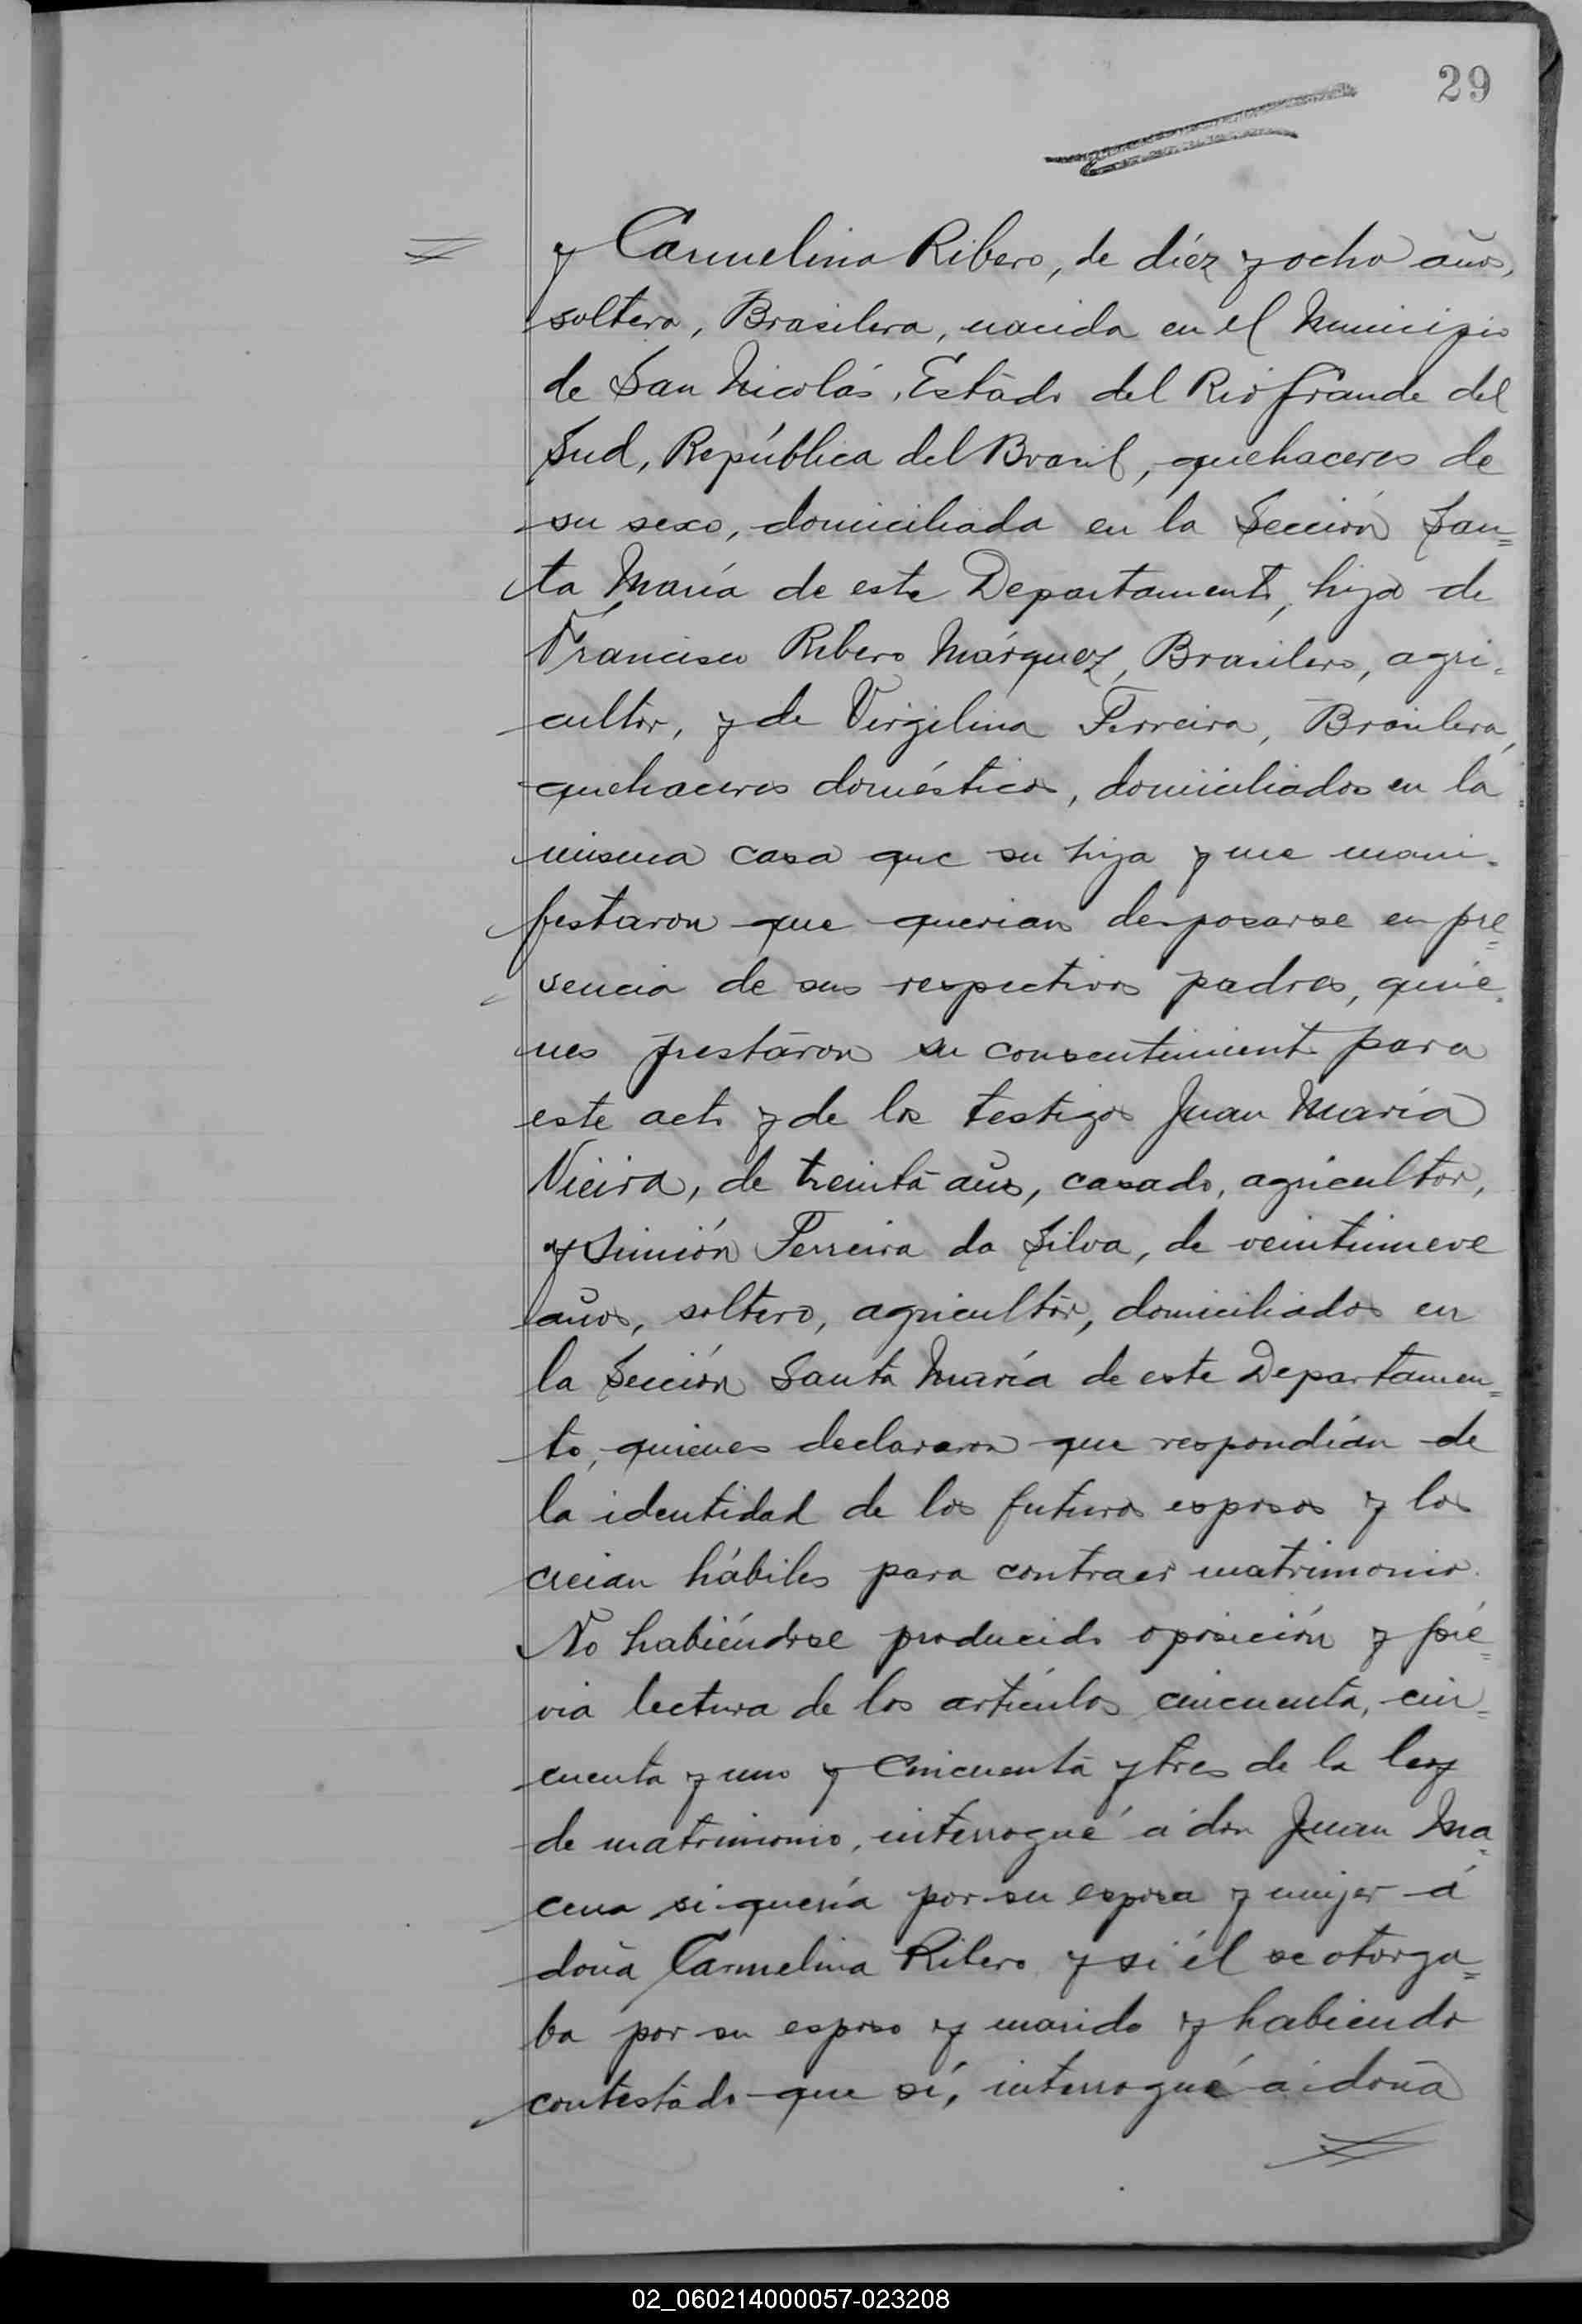 29
y Carmelina Ribero, de diéz y ocho años,
soltera, Brasilera, nacida en el Municipio
de San Nicolás, Estado del Rio Grande del
Sud, República del Brasil, quehaceres de
su sexo, domiciliada en la Sección San=
ta María de este Departamento, hija de
Francisco Ribero Márquez, Brasilero, agri-
cultor, y de Virgilina Ferreira, Brasilera,
quehaceres domésticos, domiciliados en la
misma casa que su hija y me mani-
festaron que querian desposarse en pre=
sencia de sus respectivos padres, quie-
nes prestaron su consentimiento para
este acto y de los testigos Juan María
Vieira, de treinta años, casado, agricultor,
y Simión Ferreira da Silva, de veintinueve
años, soltero, agricultor, domiciliados en
la Sección Santa María de este Departamen=
to, quienes declararon que respondían de
la identidad de los futuros esposos y los
creian hábiles para contraer matrimonio.
No habiéndose producido oposición y pré=
via lectura de los artículos cincuenta, cin=
cuenta y uno y cincuenta y tres de la ley
de matrimonio, interrogué á don Juan Ma=
cena si quería por su esposa y mujer á
doña Carmelina Ribero y si él se otorga=
ba por su esposo y marido y habiendo
contestado que sí, interrogué á doña
02_060214000057-023208